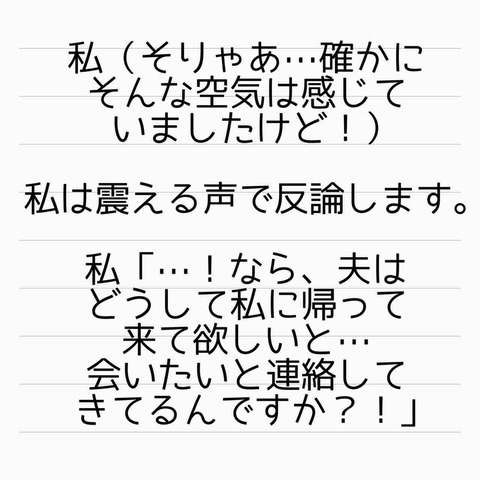 私（そりゃあ…確かに
そんな空気は感じて
いましたけど！）
私は震える声で反論します。
私「…！なら、夫は
どうして私に帰って
来て欲しいと…
会いたいと連絡して
きてるんですか？！」